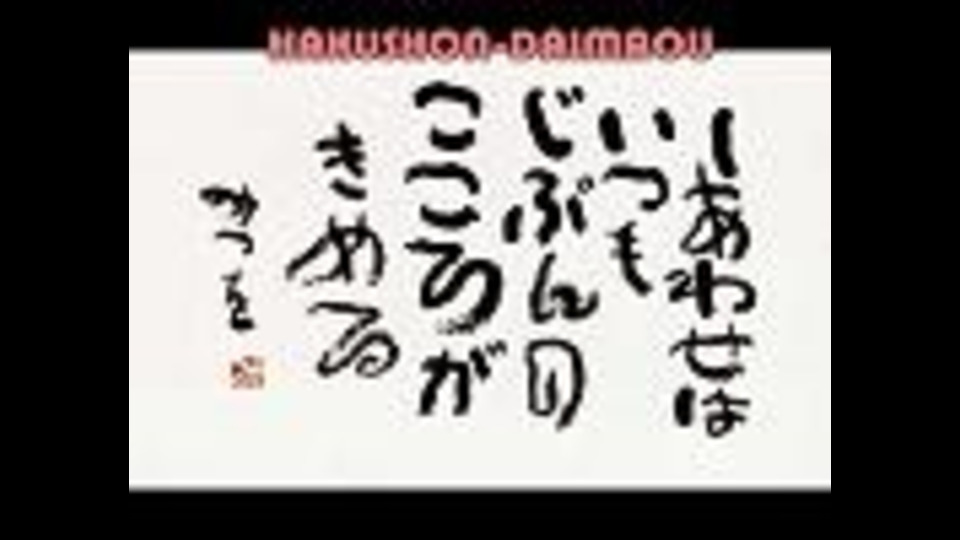 HAKUSHON-DAIMAOU
しあわせは
いつも
じぶんの
こころが
きめる
みつを